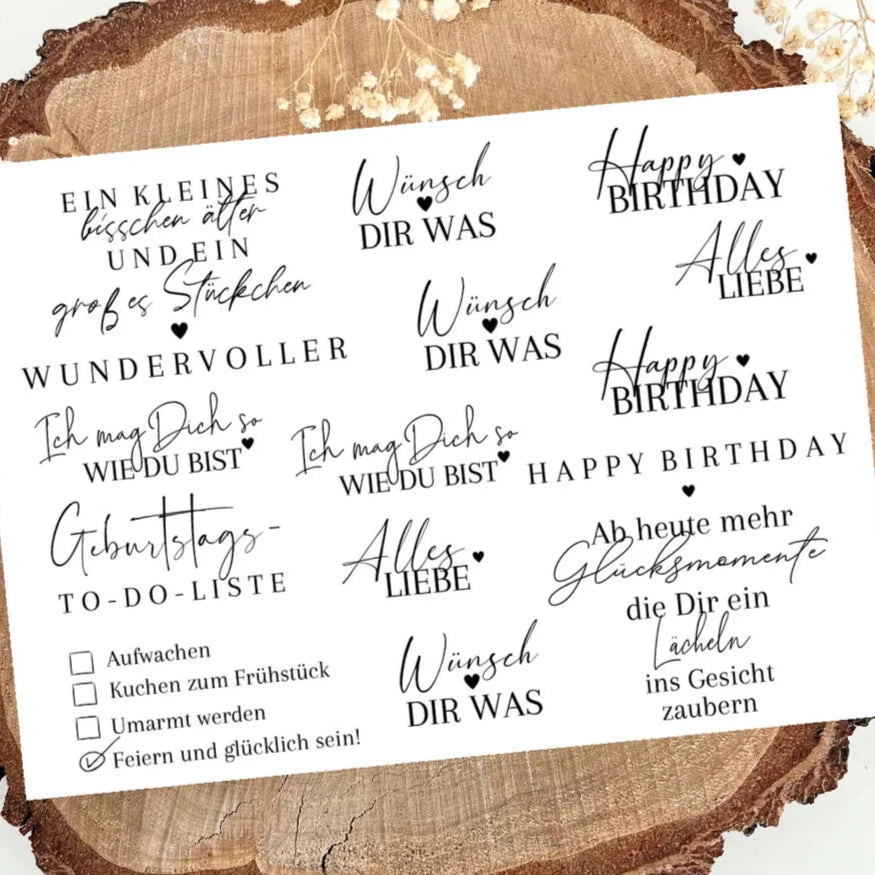 EIN KLEINES
bisschen älter
UND EIN
großes Stückchen
WUNDERVOLLER
Wünsch
DIR WAS
Happy
BIRTHDAY
Alles
LIEBE
Wünsch
DIR WAS
Happy
BIRTHDAY
Ich mag Dich so
WIE DU BIST
Ich mag Dich so
WIE DU BIST
HAPPY BIRTHDAY
Geburtstags-
TO-DO-LISTE
Aufwachen
Kuchen zum Frühstück
Umarmt werden
Feiern und glücklich sein!
Alles
LIEBE
Wünsch
DIR WAS
Ab heute mehr
Glücksmomente
die Dir ein
Lächeln
ins Gesicht
zaubern